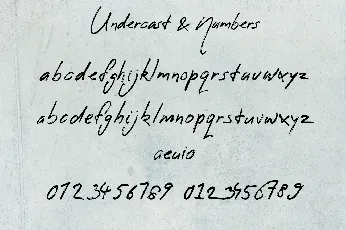 Undercast & Numbers
abcdefghijklmnopqrstuvwxyz
abcdefghijklmnopqrstuvwxyz
aeuio
0123456789 0123456789